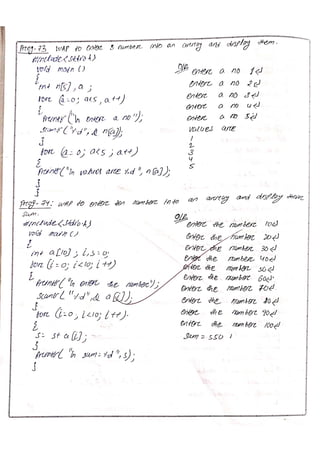 Prog-23. WAP to enter 5 number into an array and display them.
#include<stdio.h>
void main ()
{
int n[5], a ;
for (a=0; a<5, a++)
{
printf("\n enter a no");
scanf("%d", & n[a]);
}
for (a=0; a<5 ; a++)
{
printf("\n values are %d", n[a]);
}
}
O/P
enter a no 1
enter a no 2
enter a no 3
enter a no 4
enter a no 5
values are
1
2
3
4
5
Prog-24: WAP to enter ten number into an array and display their
sum.
#include<stdio.h>
void main ()
{
int a[10] ; i, s=0;
for (i=0; i<10; i++)
{
printf("\n enter the number");
scanf("%d", & a[i]);
}
for (i=0, i<10; i++).
{
s= s+ a[i];
}
printf("\n sum=%d", s);
}
O/P
enter the number 10
enter the number 20
enter the number 30
enter the number 40
enter the number 50
enter the number 60
enter the number 70
enter the number 80
enter the number 90
enter the number 100
sum = 550